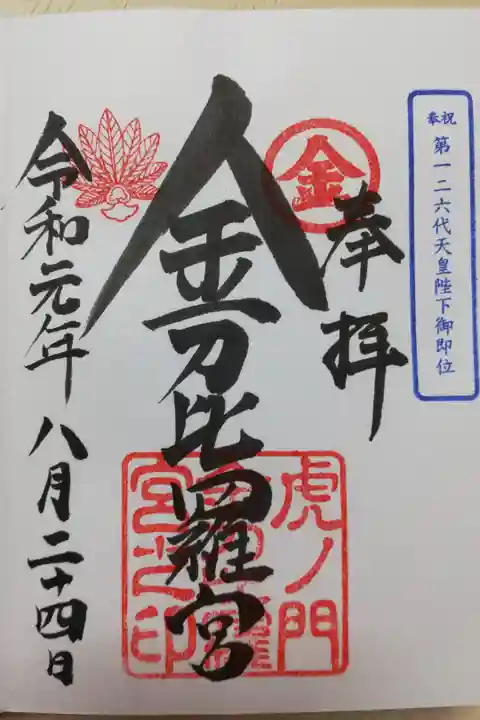 奉祝 第一二六代天皇陛下御即位
金
奉拝
金刀比羅宮
虎ノ門
金刀比羅
宮之印
令和元年八月二十四日